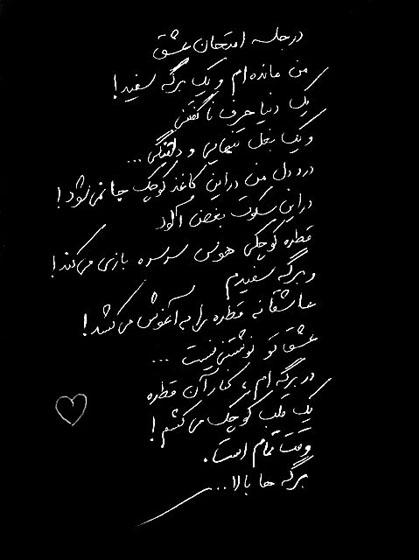 در جلسه امتحان عشق
من مانده‌ام و یک برگه سفید!
یک دنیا حرف ناگفتنی
و یک بغل تنهایی و دلتنگی...
درد دل من در این کاغذ کوچک جا نمی‌شود!
در این سکوت بغض آلود
قطره کوچکی هوس سرسره بازی می‌کند!
و برگه سفیدم
عاشقانه قطره را به آغوش می‌کشد!
عشق تو نوشتنی نیست ...
در برگه‌ام، کنار آن قطره
یک قلب کوچک می‌کشم!
وقت تمام است.
برگه ها بالا...